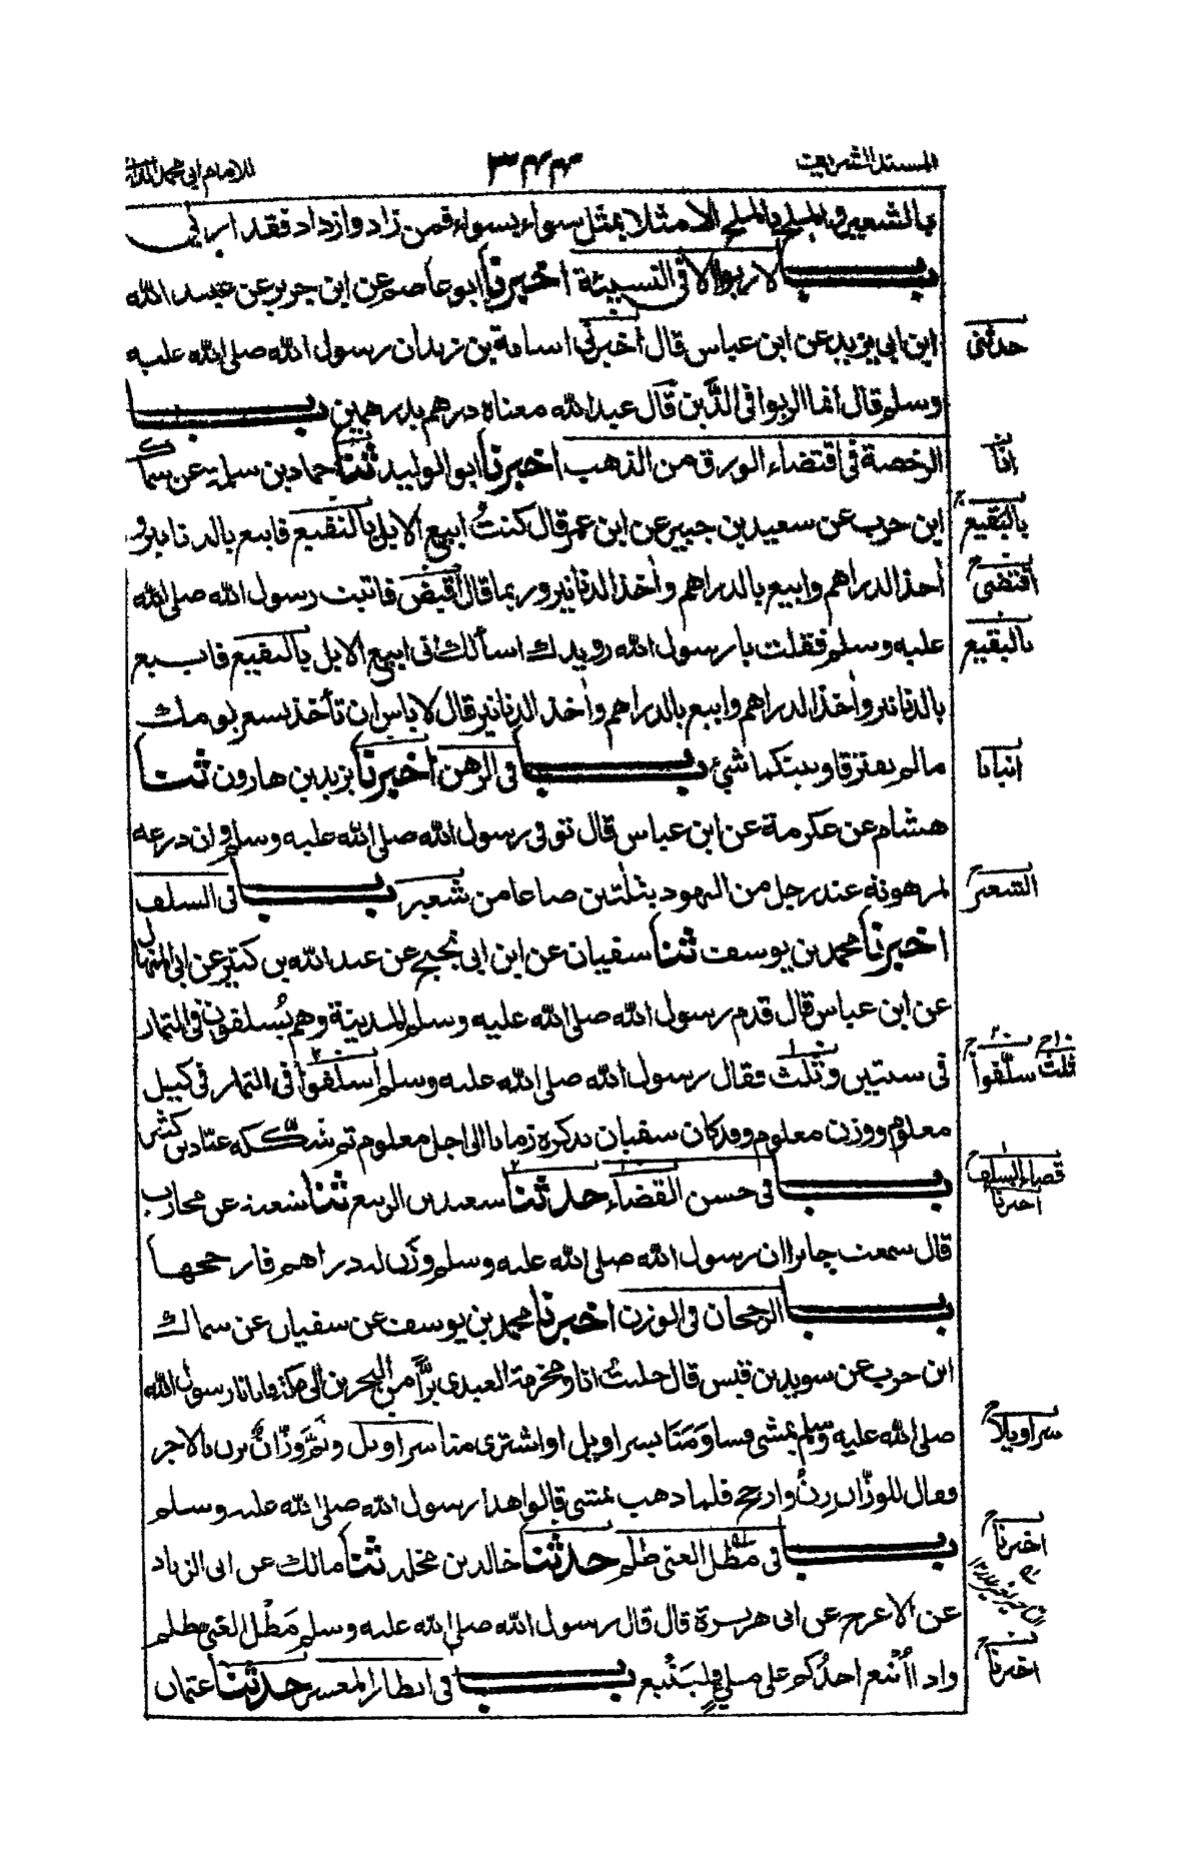 المسند الشريف
للامام ابي محمد
بالشعير والملح بالملح الا مثلا بمثل سواء بسواء فمن زاد وازداد فقد اربى
باب لا ربوا الا فى النسيئة اخبرنا ابو عاصم عن ابن جريج عن عبيد الله
ابن ابي يزيد عن ابن عباس قال اخبرنى اسامة بن زيد ان رسول الله صلى الله عليه
حدثنى
وسلم قال انما الربوا فى الدَّين قال عبد الله معناه درهم بدرهمين باب
الرخصة فى اقتضاء الورق من الذهب اخبرنا ابو الوليد ثنا حماد بن سلمة عن سماك
انا
ابن حرب عن سعيد بن جبير عن ابن عمر قال كنتُ ابيع الابل بالنقيع فابيع بالدنانير و
بالبقيع
أخذ الدراهم وابيع بالدراهم وأخذ الدنانير وربما قال أقبض فاتيت رسول الله صلى الله
اقتضى
عليه وسلم فقلت يا رسول الله رويدك اسألك انى ابيع الابل بالنقيع فابيع
بالبقيع
بالدنانير وأخذ الدراهم وابيع بالدراهم وأخذ الدنانير قال لا باس ان تأخذ بسعر يومك
مالم يفترقا وبينكما شئ باب فى الرهن اخبرنا يزيد بن هارون ثنا
انبانا
هشام عن عكرمة عن ابن عباس قال توفى رسول الله صلى الله عليه وسلم وان درعه
لمرهونة عند رجل من اليهود بثلثين صاعا من شعير باب فى السلف
الشعير
اخبرنا محمد بن يوسف ثنا سفيان عن ابن ابى نجيح عن عبد الله بن كثير عن ابى المنهال
عن ابن عباس قال قدم رسول الله صلى الله عليه وسلم المدينة وهم يُسلفون فى الثمار
فى سنتين وثلث فقال رسول الله صلى الله عليه وسلم اسلفوا فى الثمار فى كيل
ثلث سلّفوا
معلوم ووزن معلوم وقد كان سفيان يذكره زمانا الى اجل معلوم ثم شكّكه عبّاد بن كثير
باب فى حسن القضاء حدثنا سعيد بن الربيع ثنا شعبة عن محارب
قضاء السلف
اخبرنا
قال سمعت جابرا ان رسول الله صلى الله عليه وسلم وزن له دراهم فارجحها
باب الرجحان فى الوزن اخبرنا محمد بن يوسف عن سفيان عن سماك
ابن حرب عن سويد بن قيس قال جلبت انا ومخرمة العبدى بزًّا من البحرين الى مكة فاتانا رسول الله
صلى الله عليه وسلم يمشى فساومَنَا بسراويل او اشترى منا سراويل وثَمَّ وزّان يزن بالاجر
سراويلا
فقال للوزّان زِنْ وارجح فلما ذهب يمشى قالوا هذا رسول الله صلى الله عليه وسلم
باب فى مَطْل الغنى ظلم حدثنا خالد بن مخلد ثنا مالك عن ابى الزناد
اخبرنا
عن الاعرج عن ابى هريرة قال قال رسول الله صلى الله عليه وسلم مَطْل الغنى ظلم
واذا أُتْبع احدُكم على ملئ فليَتْبع باب فى انظار المعسر حدثنا عثمان
اخبرنا